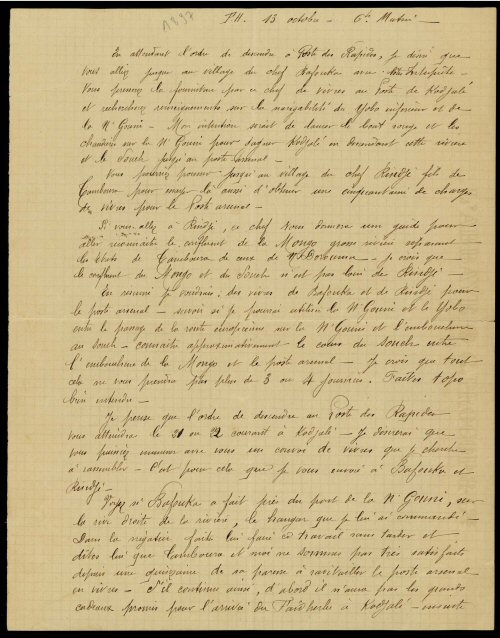 1897
P.R. 13 octobre - 6h. Matin -
En attendant l'ordre de descendre à Poste des Rapides, je désire que
vous alliez jusque au village du chef Bafouka avec votre Interprète -
Vous presserez la fourniture par ce chef de vivres au Poste de Kodjalé
et rechercherez renseignements sur la navigabilité du Yobo inférieur et de
la N'Gouni - Mon intention serait de lancer le boat rouge et les
chalands sur la N'Gouni pour gagner Kodjalé en descendant cette rivière
et le Soueh jusqu'au poste arsenal -
Vous pourrez pousser jusqu'au village du chef Rindji fils de
Tamboura pour essayer là aussi d'obtenir une cinquantaine de charges
de vivres pour le Poste arsenal -
Si vous allez à Rindji, ce chef vous donnera un guide pour
aller reconnaître le confluent de la Mongo grosse rivière séparant
les Etats de Tamboura de ceux de Doroumo - je crois que
le confluent du Mongo et du Soueh n'est pas loin de Rindji -
En résumé je voudrais : des vivres de Bafouka et de Rindji pour
le poste arsenal - savoir si je pourrai utiliser la N'Gouni et le Yobo
entre le passage de la route européenne sur la N'Gouni et l'embouchure
au Soueh - connaître approximativement le cours du Soueh entre
l'embouchure de la Mongo et le poste arsenal - Je crois que tout
cela ne vous prendra pas plus de 3 ou 4 journées. Faites topo
bien entendu -
Je pense que l'ordre de descendre au Poste des Rapides
vous attendra le 21 ou 22 courant à Kodjalé - je désirerai que
vous puissiez emmener avec vous un convoi de vivres que je cherche
à rassembler - C'est pour cela que je vous envoie à Bafouka et
Rindji -
Voyez si Bafouka a fait près du pont de la N'Gouni, sur
la rive droite de la rivière, le hangar que je lui ai commandé -
Dans la négative faites lui faire ce travail sans tarder et
dites lui que Tamboura et moi ne sommes pas très satisfaits
depuis une quinzaine de sa paresse à ravitailler le poste arsenal
en vivres - S'il continue ainsi, d'abord il n'aura pas les grands
cadeaux promis pour l'arrivée du Faidherbe à Kodjalé - ensuite